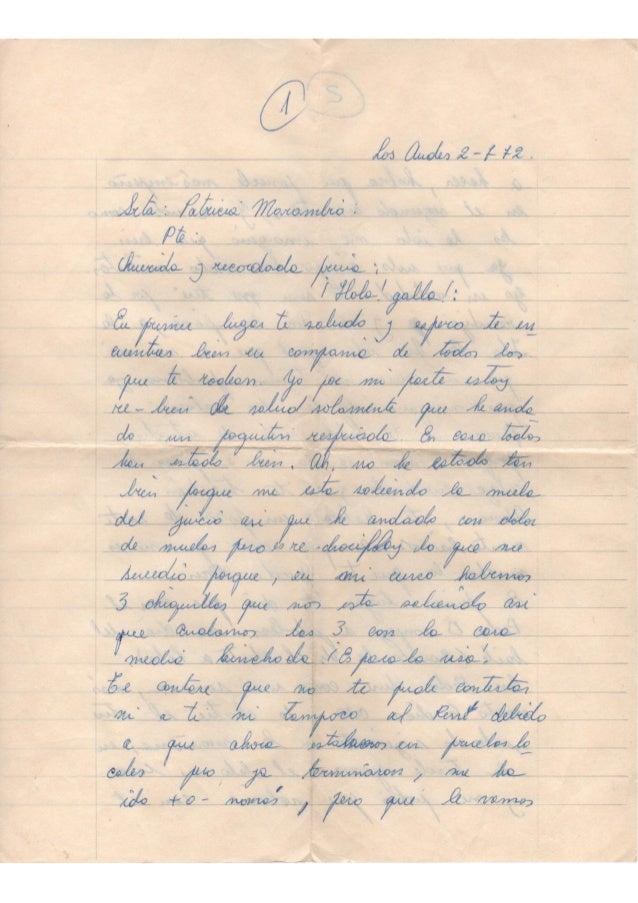 1 5
Los Andes 2-7-72.
Srta: Patricia Marambio:
Pte:
Querida y recordada prima:
¡Hola! galla!:
En primer lugar te saludo y espero te en
cuentres bien en compania de todos los
que te rodean. Yo por mi parte estoy
re-bien de salud solamente que he anda
do un poquitin resfriada. En casa todos
han estado bien. Ah, no he estado tan
bien porque me esta saliendo la muela
del juicio asi que he andado con dolor
de muelas pero es re-choci lo que me
sucedió porque, en mi curso habemos
3 chiquillas que nos esta saliendo asi
que andamos las 3 con la cara
media hinchada ¡Es para la risa!
Te contare que no te pude contestar
ni a ti ni tampoco al René debido
a que ahora estabamos en pruebas lo
cales pero ya terminaron, me ha
ido + o - nomás, pero que le vamos